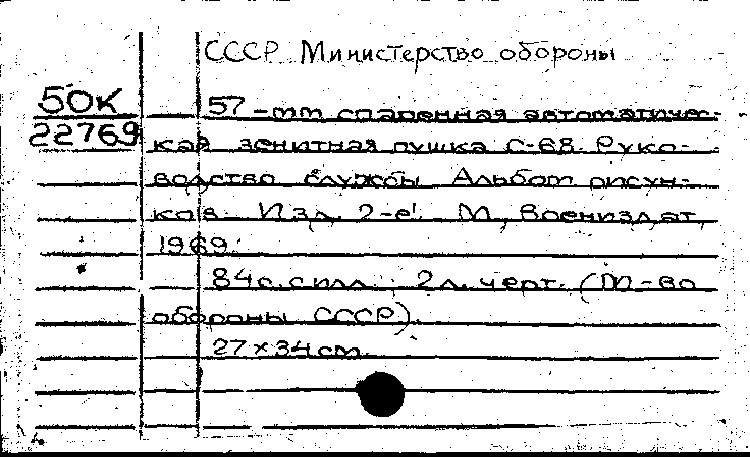 СССР Министерство обороны
50К
22769
57-mm спаренная автоматичес-
кая зенитная пушка С-68. Руко-
водство службы Альбом рисун-
ков. Изд. 2-е. М., Воениздат,
1969.
84 с. с илл.; 2 л. черт. (М-во
обороны СССР).
27 х 34 см.